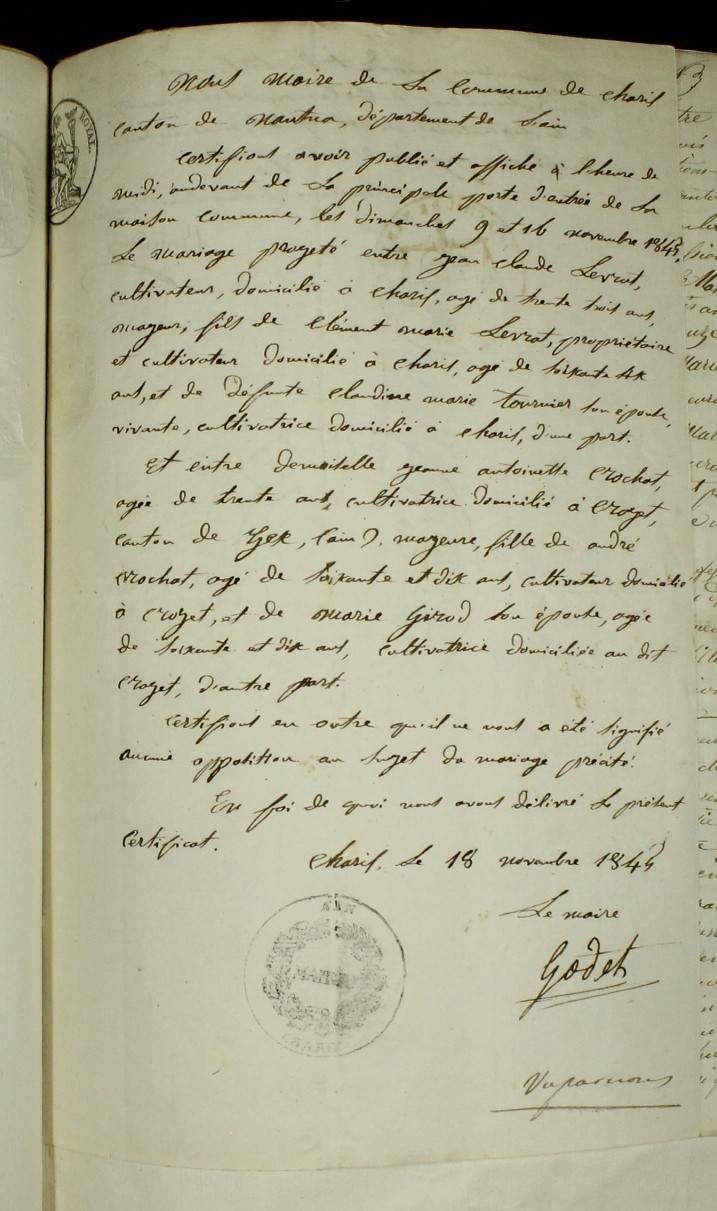 ROYAL.
Nous maire de la Commune de charix
canton de nantua, département de l'ain
certifions avoir publié et affiché à l'heure de
midi, audevant de la principale porte d'entrée de la
maison commune, les dimanches 9 et 16 novembre 1845,
Le mariage progeté entre jean claude Levrat,
cultivateur, domicilié à charix, agé de trente trois ans,
mageur, fils de Clément marie Levrat, propriétaire
et cultivateur domicilié à charix, agé de soixante six
ans, et de défunte claudine marie tournier son épouse,
vivante, cultivatrice domicilié à charix, d'une part.
Et entre demoiselle jeanne antoinette Crochat,
agée de trente ans, cultivatrice domicilié à Crozet,
canton de Gex, (ain), mageure, fille de andré
crochat, agé de soixante et dix ans, cultivateur domicilié
à crozet, et de marie Girod son épouse, agée
de soixante et dix ans, cultivatrice domiciliée au dit
Crozet, d'autre part.
Certifions en outre qu'il ne nous a été signifié
aucune opposition au sujet du mariage précité.
En foi de quoi nous avons délivré le présent
Certificat.
charix, le 18 novembre 1845
Le maire
Godet
Vu par nous